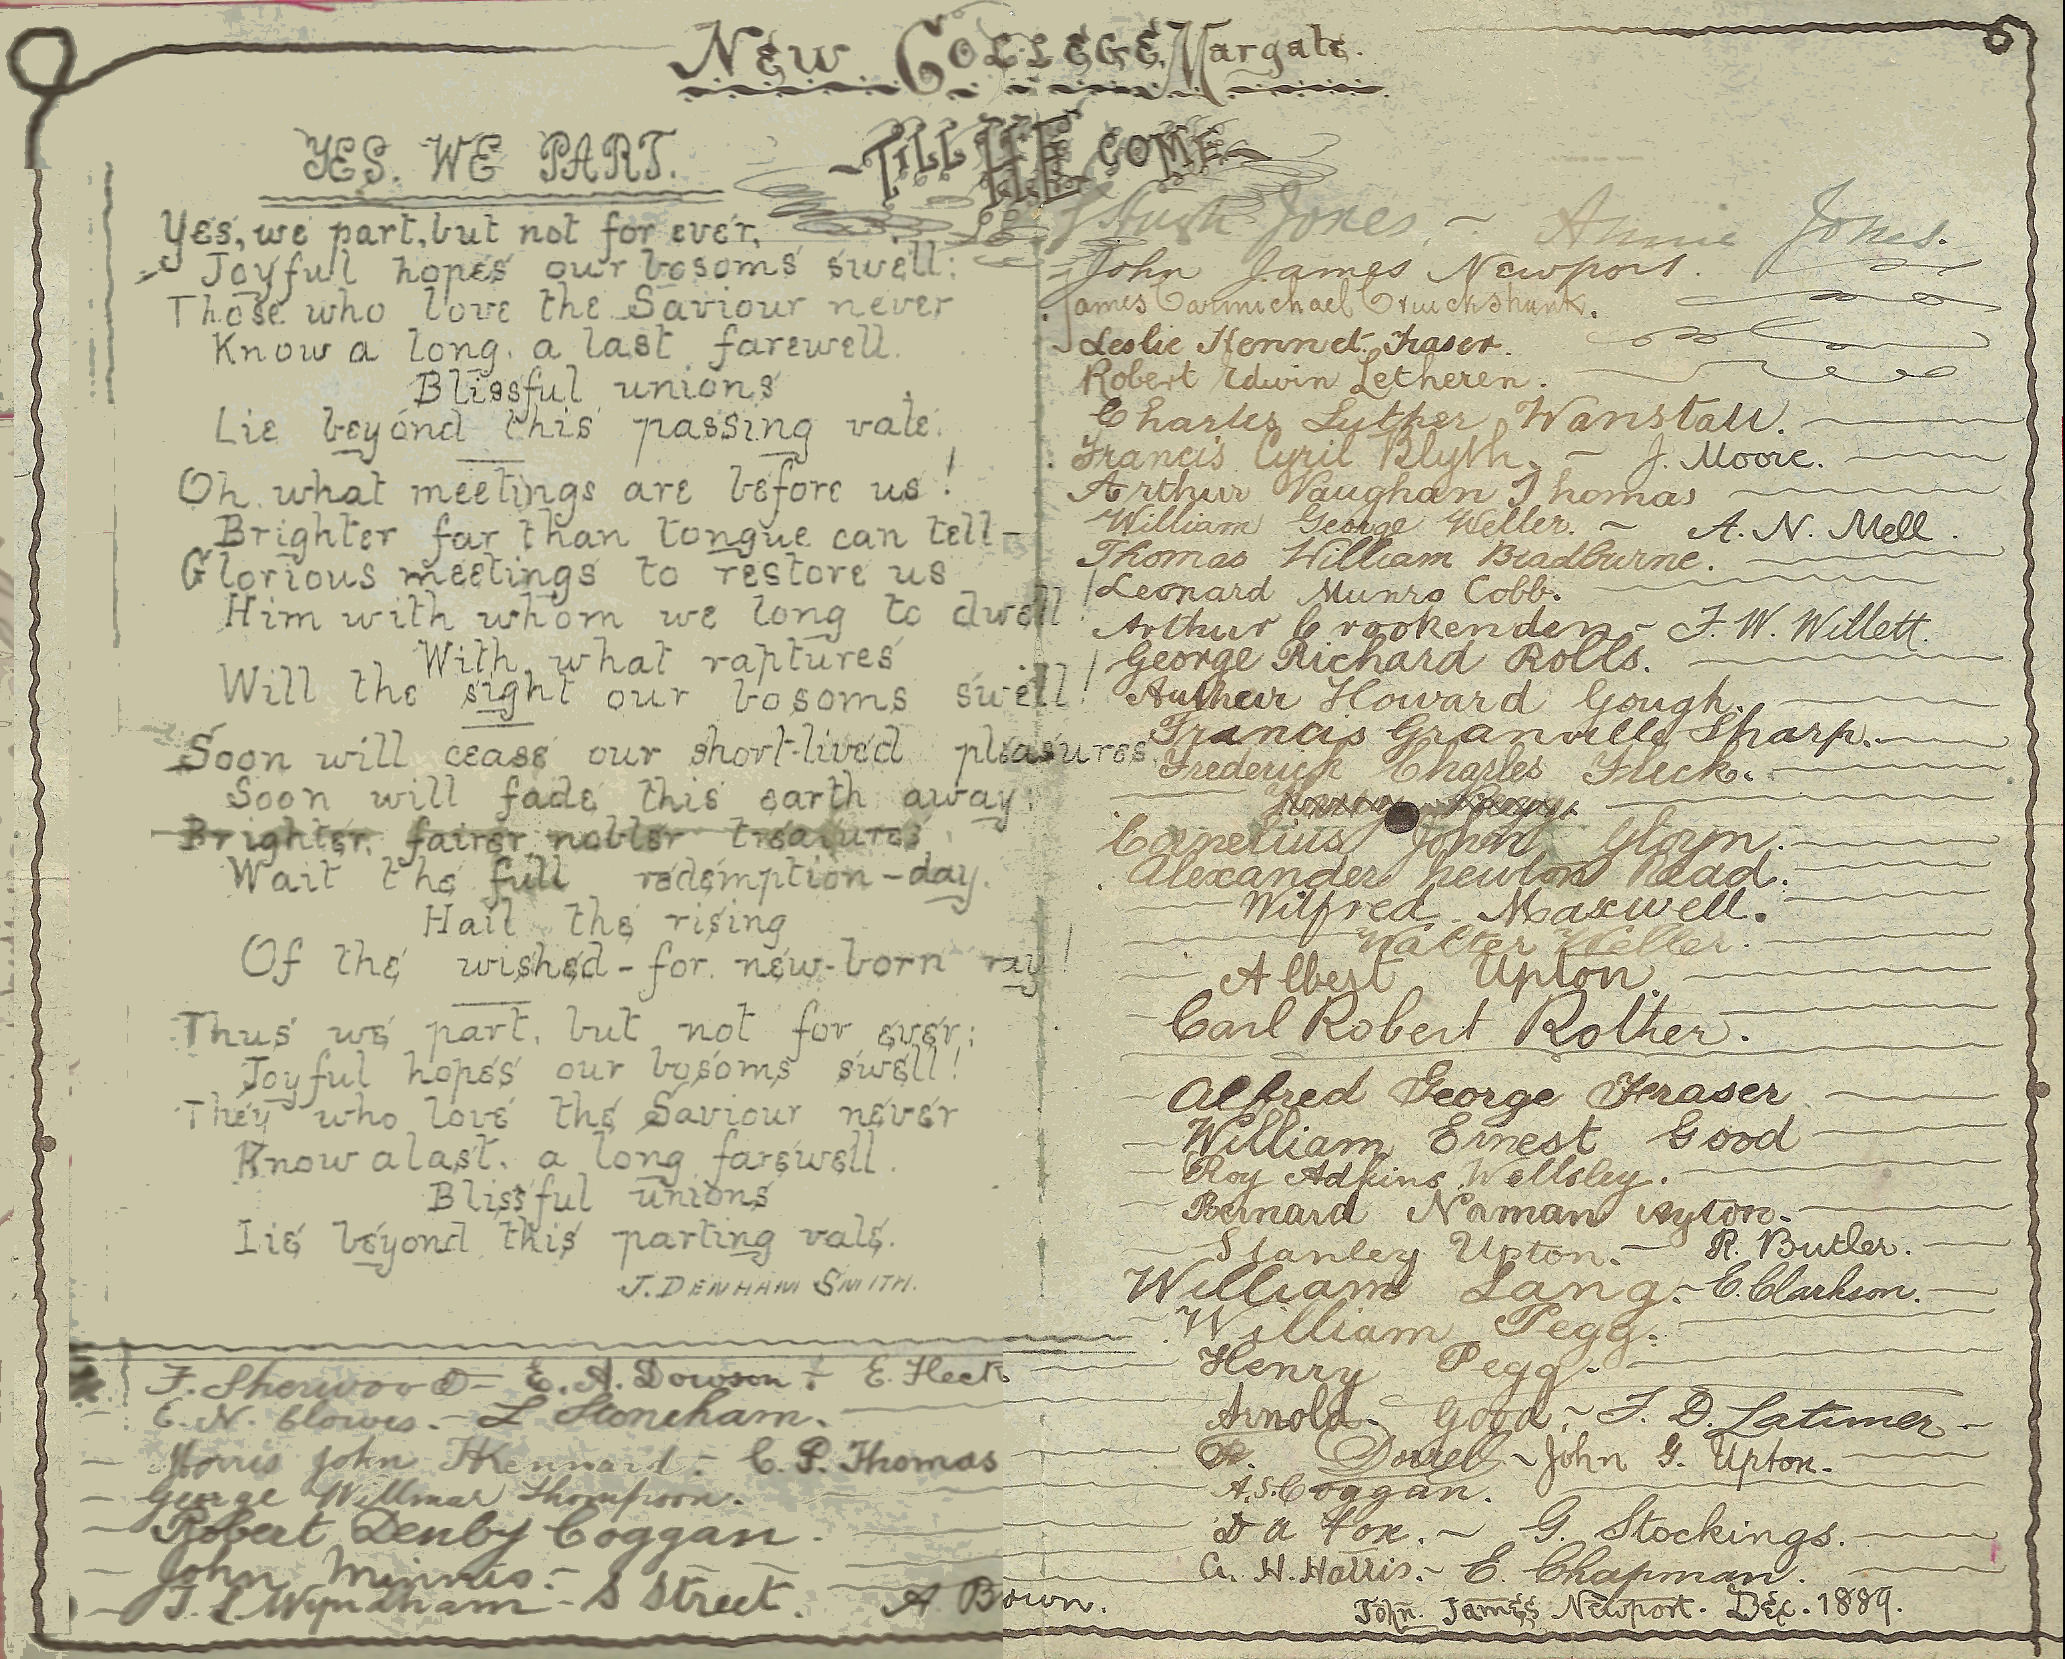 New College, Margate.
YES. WE PART.
~TILL HE COME~
Yes, we part, but not for ever,
Joyful hopes our bosoms swell:
Those who love the Saviour never
Know a long, a last farewell.
Blissful unions
Lie beyond this passing vale.
Oh what meetings are before us!
Brighter far than tongue can tell-
Glorious meetings to restore us
Him with whom we long to dwell!
With what raptures
Will the sight our bosoms swell!
Soon will cease our short-lived pleasures
Soon will fade this earth away:
Brighter, fairer, nobler treasures
Wait the full redemption-day.
Hail the rising
Of the wished-for new-born ray!
Thus we part, but not for ever;
Joyful hopes our bosoms swell!
They who love the Saviour never
Know a last, a long farewell.
Blissful unions
Lie beyond this parting vale.
J. DENHAM SMITH.
F. Sherwood - E. A. Dowson - E. Fleck
E. N. Clowes. - L Stoneham.
Morris John Kennard - C. P. Thomas
George Willmar Thompson.
Robert Denby Coggan.
John Minnis. -
T. L Wyndham - S Street. A Brown.
Hugh Jones. ~ Annie Jones.
John James Newport.
James Carmichael Cruickshank.
Leslie Kennet Fraser.
Robert Edwin Letheren.
Charles Luther Wanstall.
Francis Cyril Blyth. ~ J. Moore.
Arthur Vaughan Thomas
William George Weller. ~ A. N. Mell.
Thomas William Bradburne.
Leonard Munro Cobb.
Arthur Crookenden ~ F. W. Willett.
George Richard Rolls.
Arthur Howard Gough.
Francis Granville Sharp.
Frederick Charles Fleck.
Cornelius John Gloyn.
Alexander Newton Read.
Wilfred Maxwell.
Walter Weller.
Albert Upton.
Carl Robert Rother.
Alfred George Fraser
William Ernest Good
Roy Adkins Wellsley.
Bernard Norman Ayton.
Stanley Upton. ~ R. Butler.
William Lang. ~ C. Clarkson.
William Pegg.
Henry Pegg.
Arnold Good. ~ F. D. Latimer ~
Dorrell ~ John G. Upton.
A.S. Coggan.
D A Fox. ~ G. Stockings.
G. H. Hallis. ~ E. Chapman.
John James Newport. Dec. 1889.